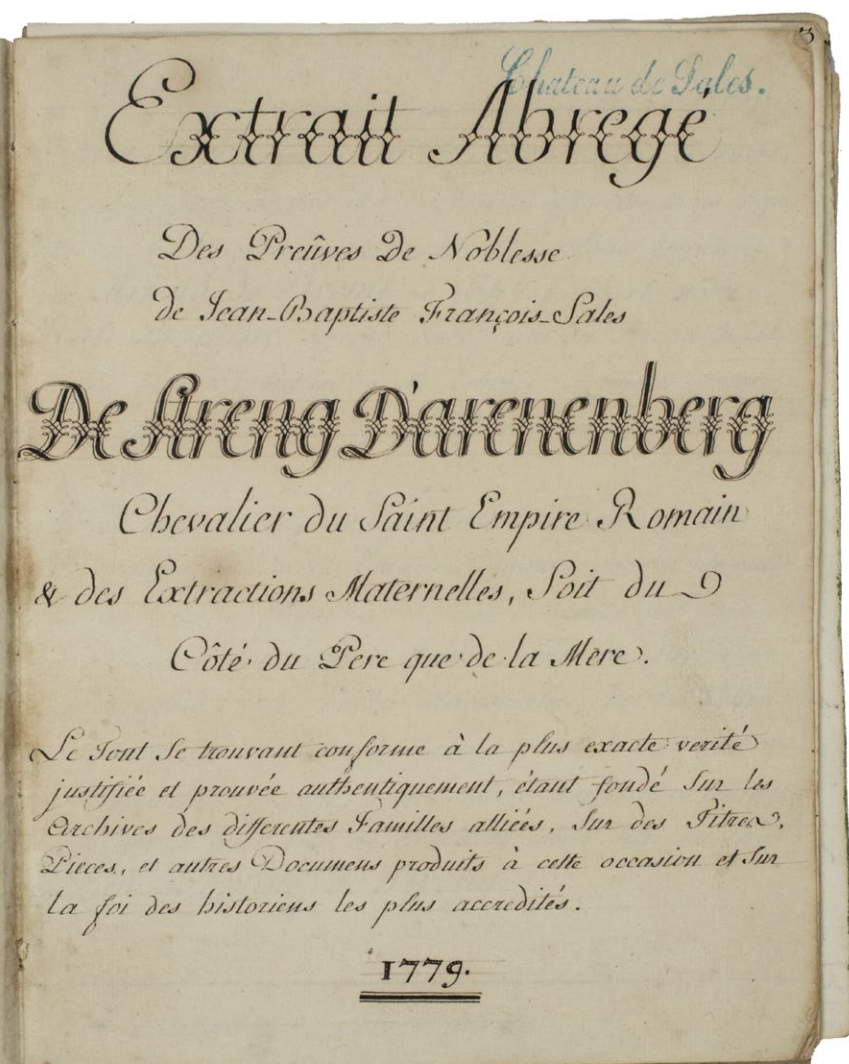 3
Chateau de Sales.
Extrait Abregé
Des Preûves De Noblesse
de Jean-Baptiste François-Sales
De Streng D'arenenberg
Chevalier du Saint Empire Romain
& des Extractions Maternelles, Soit du
Côté du Pere que de la Mere.
Le Tout Se trouvant conforme à la plus exacte verité
justifiée et prouvée authentiquement, étant fondé Sur les
Archives des differentes Familles alliées, Sur des Titres,
Pieces, et autres Documens produits à cette occasion et Sur
la foi des historiens les plus accredités.
1779.